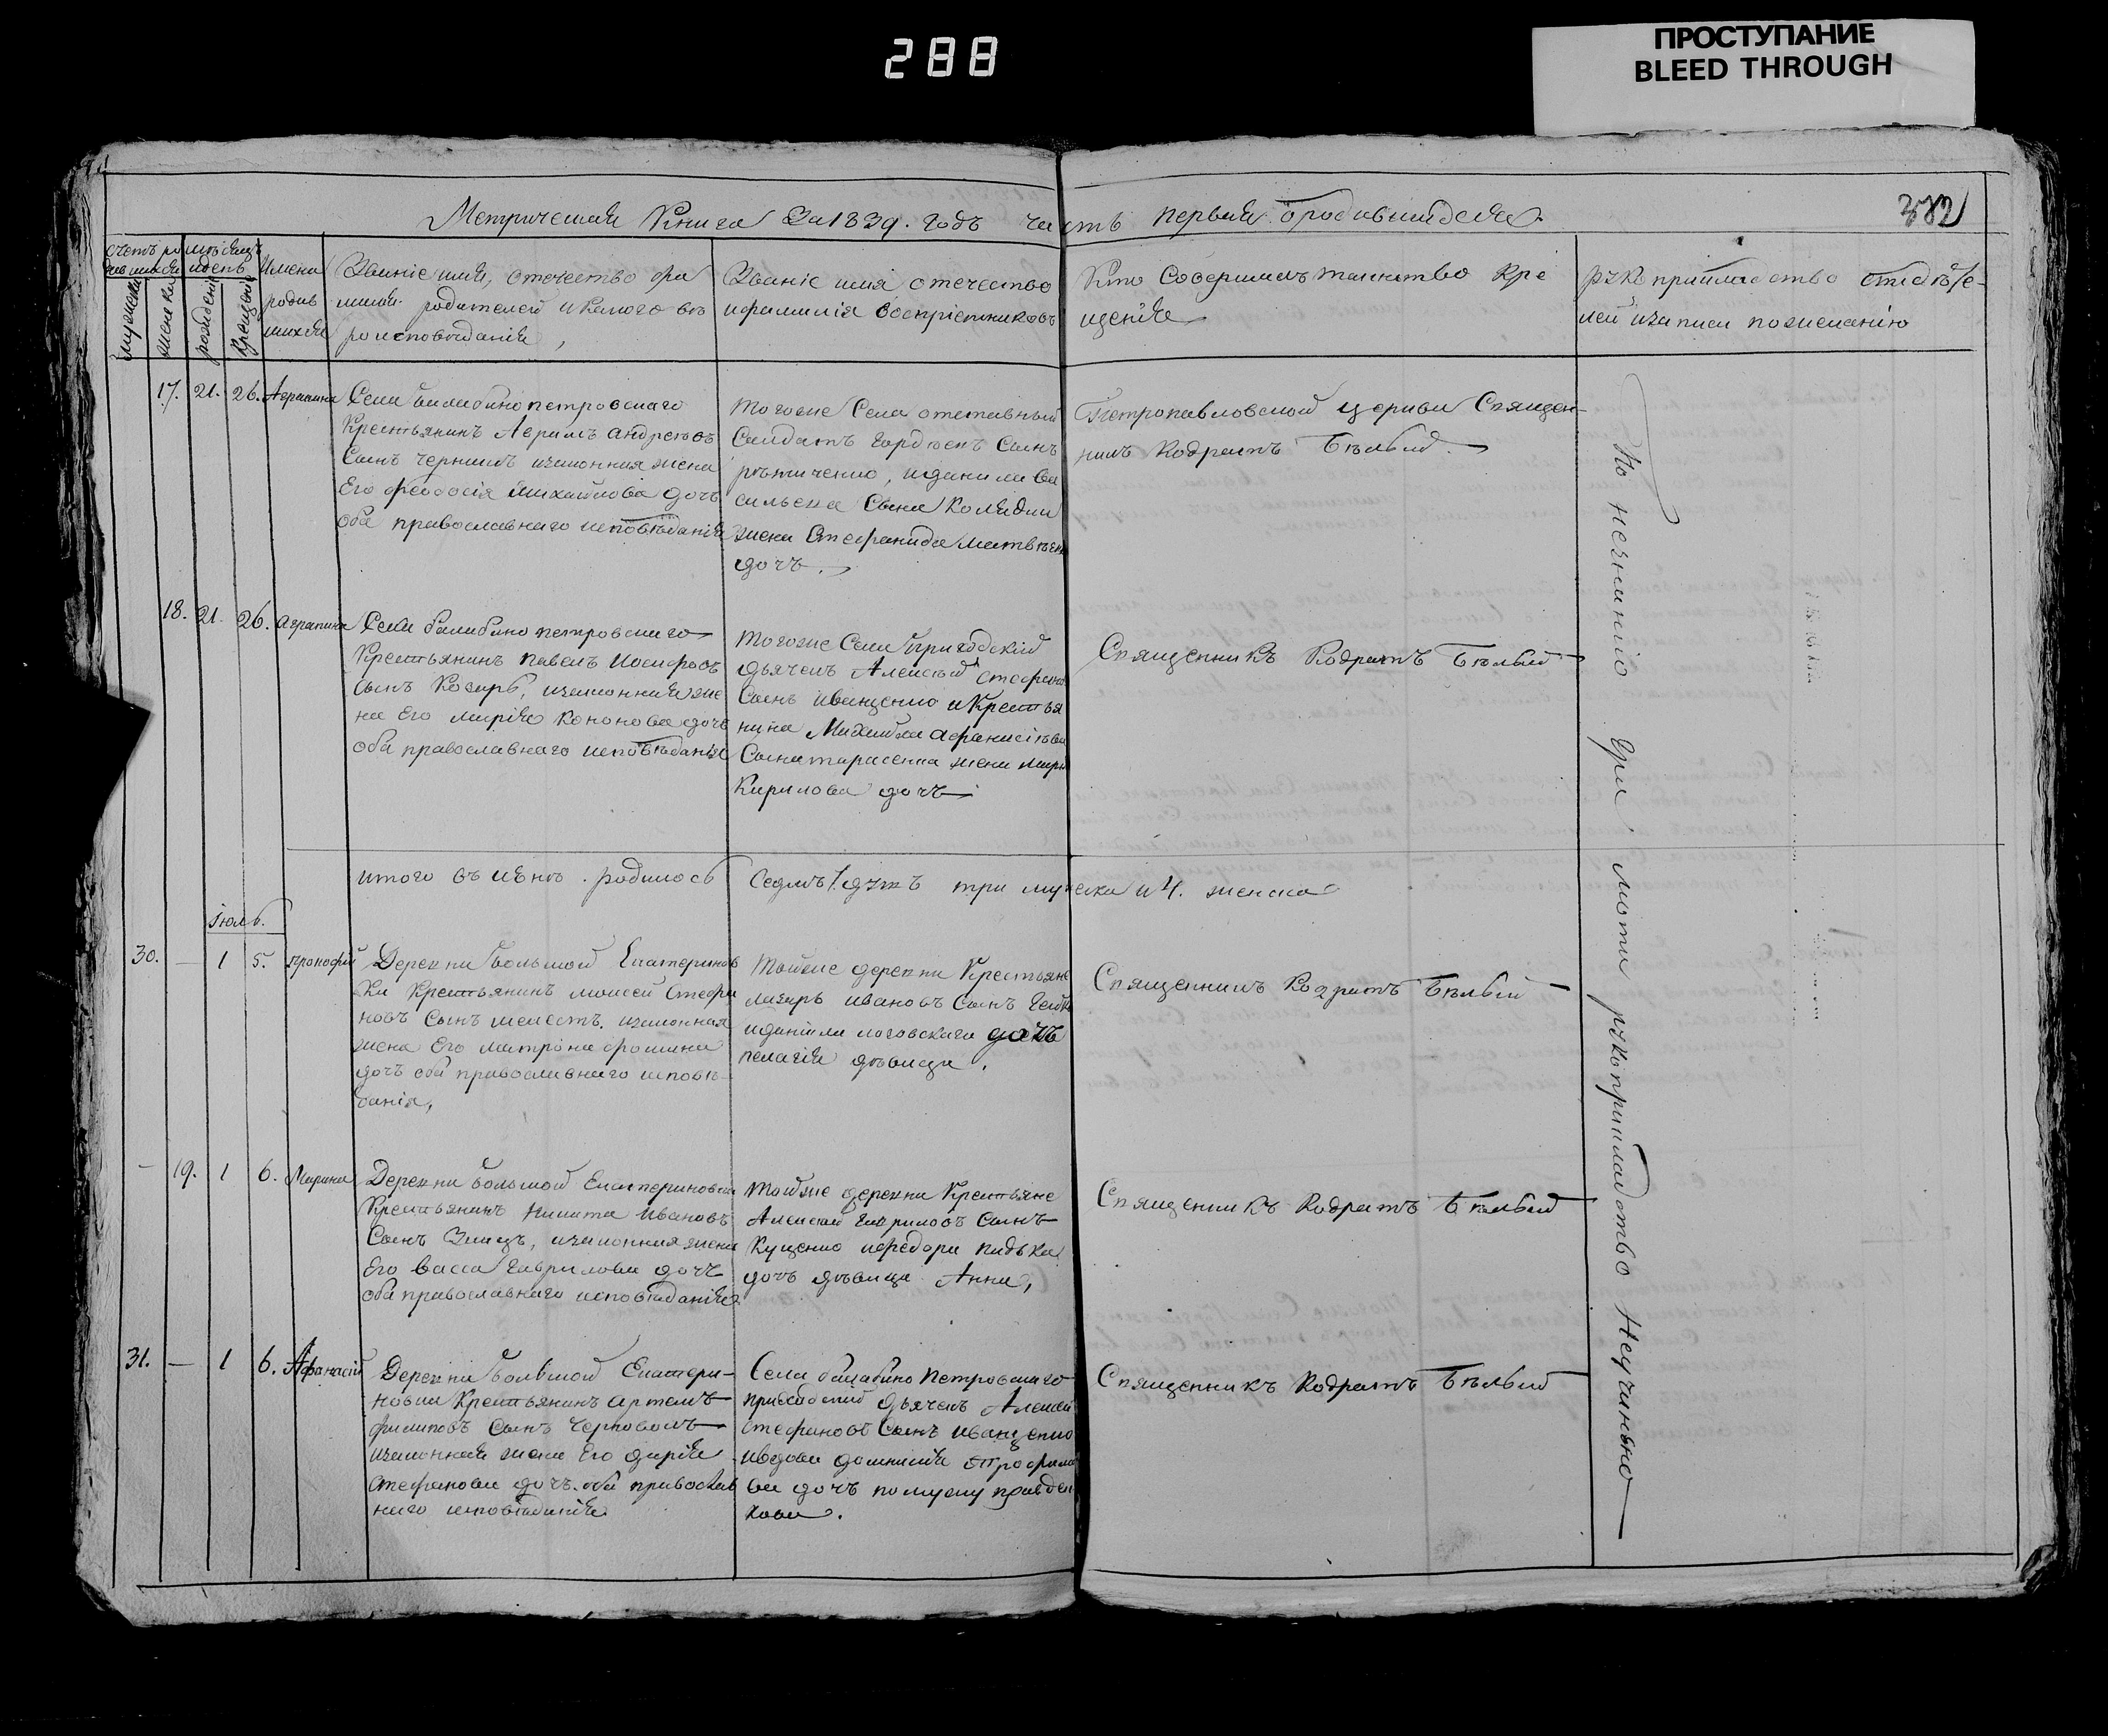 288
ПРОСТУПАНИЕ
BLEED THROUGH
Метрическая Книга За 1839. годъ часть первая о родившихся
382
Имена родившихся
Званіе имя, отечество фа
милія родителей и какого вѣ
роисповѣданія,
Званіе имя отечество
и фамилія воспріемниковъ
Кто Совершилъ таинство кре
щенія
рукоприкладство свидѣте-
лей записи по желанію
мужеска
женска
рожденія
крещенія
17. 21. 26. Агрипина
Села балабино петровскаго
Крестьянинъ Авраамъ андреевъ
Сынъ Чернякъ и законная жена
Его феодосія михайлова дочь
оба православнаго исповѣданія
Того же Села отставный
Салдатъ Гордѣенъ Сынъ
и данила ва
сильева Сына
жена Стефанида матвѣева
дочь.
Петропавловской церкви Священ-
никъ Кодратъ Бѣлый
18. 21. 26. агрипина
Села балабино петровскаго
Крестьянинъ павелъ Іосифовъ
сынъ Козыръ, и законная же
на Его марія кононова дочь
оба православнаго исповѣданія
Того же Села пригодскій
дьячекъ Алексѣй стефано
Сынъ иващенко и Крестья
нина Михаила афанасіева
Сына тарасенка жена мари
Кирилова дочь
Священникъ Кодратъ Бѣлый
итого въ іюнѣ родилось Седмъ 7. дѣтъ три мужеска и 4. женска
Іюль.
30. — 1 5. прокофій
Деревни большой Екатеринов
ки Крестьянинъ моисей Стефа
новъ Сынъ шелестъ, и законная
жена Его матрона фомина
дочь оба православнаго исповѣ-
данія,
Той же деревни Крестьяне
лазарь ивановъ Сынъ
и даніила логовскаго дочь
пелагія дѣвица,
Священникъ Кодратъ Бѣлый
— 19. 1 6. Марина
Деревни большой Екатериновки
Крестьянинъ никита Ивановъ
Сынъ Заицъ, и законная жена
Его васса гаврилова дочь
оба православнаго исповѣданія
Той же деревни Крестьяне
Алексѣй гавриловъ Сынъ
Куценко и федора
дочь дѣвица Анна,
Священникъ Кодратъ Бѣлый
31. — 1 6. Афанасій
Деревни большой Екатери-
новки Крестьянинъ артемъ
филиповъ Сынъ Черноволъ
и законная жена Его дарія
Стефанова дочь оба православ
наго исповѣданія
Села балабино Петровскаго
дьячекъ Алексѣй
стефановъ Сынъ иващенко
и вдова домникія трофимо
ва дочь по мужу правден
кова.
Священникъ Кодратъ Бѣлый
По незнанію грамоти рукоприкладство Неучинено